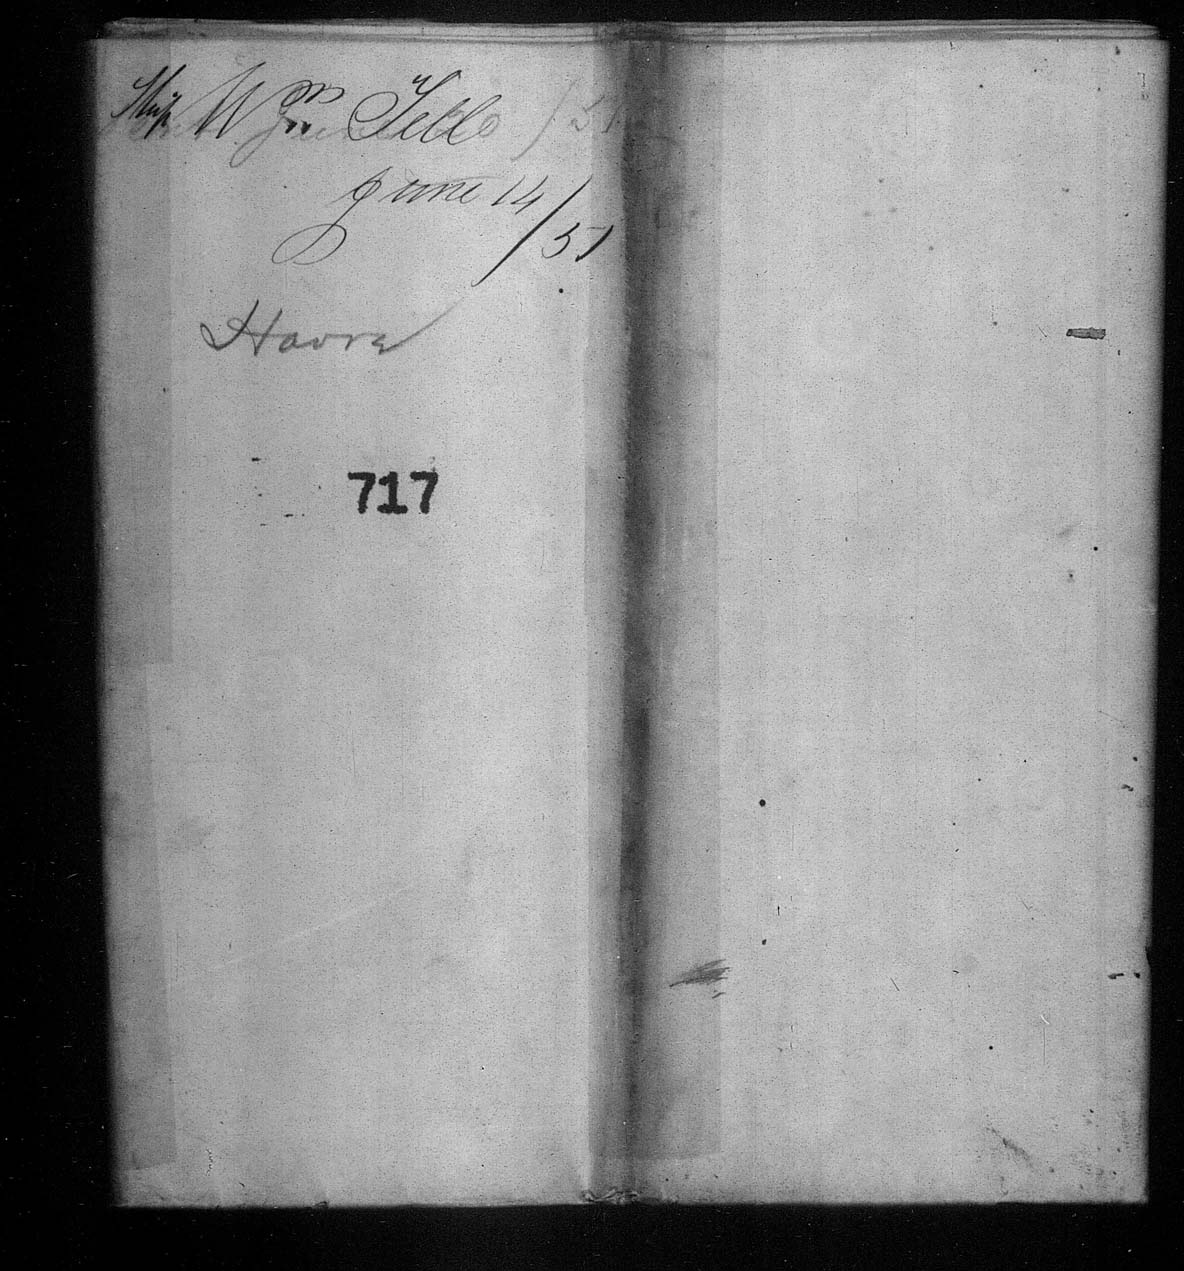 Ship Wm Tell
June 14/51
Havre
717